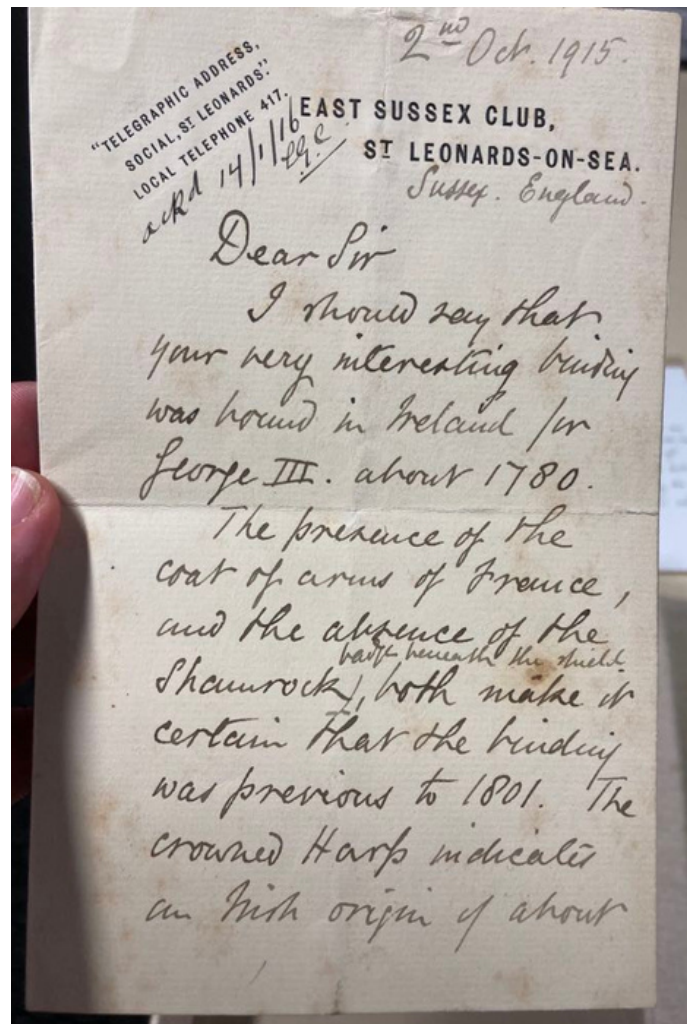 2nd Oct. 1915.
"TELEGRAPHIC ADDRESS,
SOCIAL, ST LEONARDS."
LOCAL TELEPHONE 417.
ackd 14/1/16
EAST SUSSEX CLUB,
ST LEONARDS-ON-SEA.
Sussex. England.
Dear Sir
I should say that
your very interesting binding
was bound in Ireland for
George III. about 1780.
The presence of the
coat of arms of France,
and the absence of the
badge beneath the shield
Shamrock, both make it
certain that the binding
was previous to 1801. The
crowned Harp indicates
an Irish origin of about